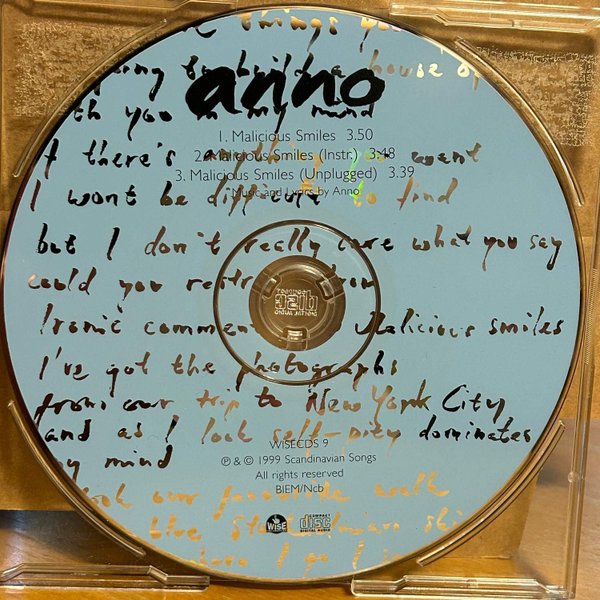 things you
a house of
anno
th you in my mind
1. Malicious Smiles 3.50
2. Malicious Smiles (Instr.) 3.48
3. Malicious Smiles (Unplugged) 3.39
Music and Lyrics by Anno
f there's anything you want
I wont be difficult to find
but I don't really care what you say
could you restrain from
Ironic comments Malicious smiles
I've got the photographs
from our trip to New York City
and as I look self-pity dominates
my mind
WISECDS 9
℗ & © 1999 Scandinavian Songs
All rights reserved
BIEM/Ncb
took our favourite walk
WISE
COMPACT
disc
DIGITAL AUDIO
the
where I go I